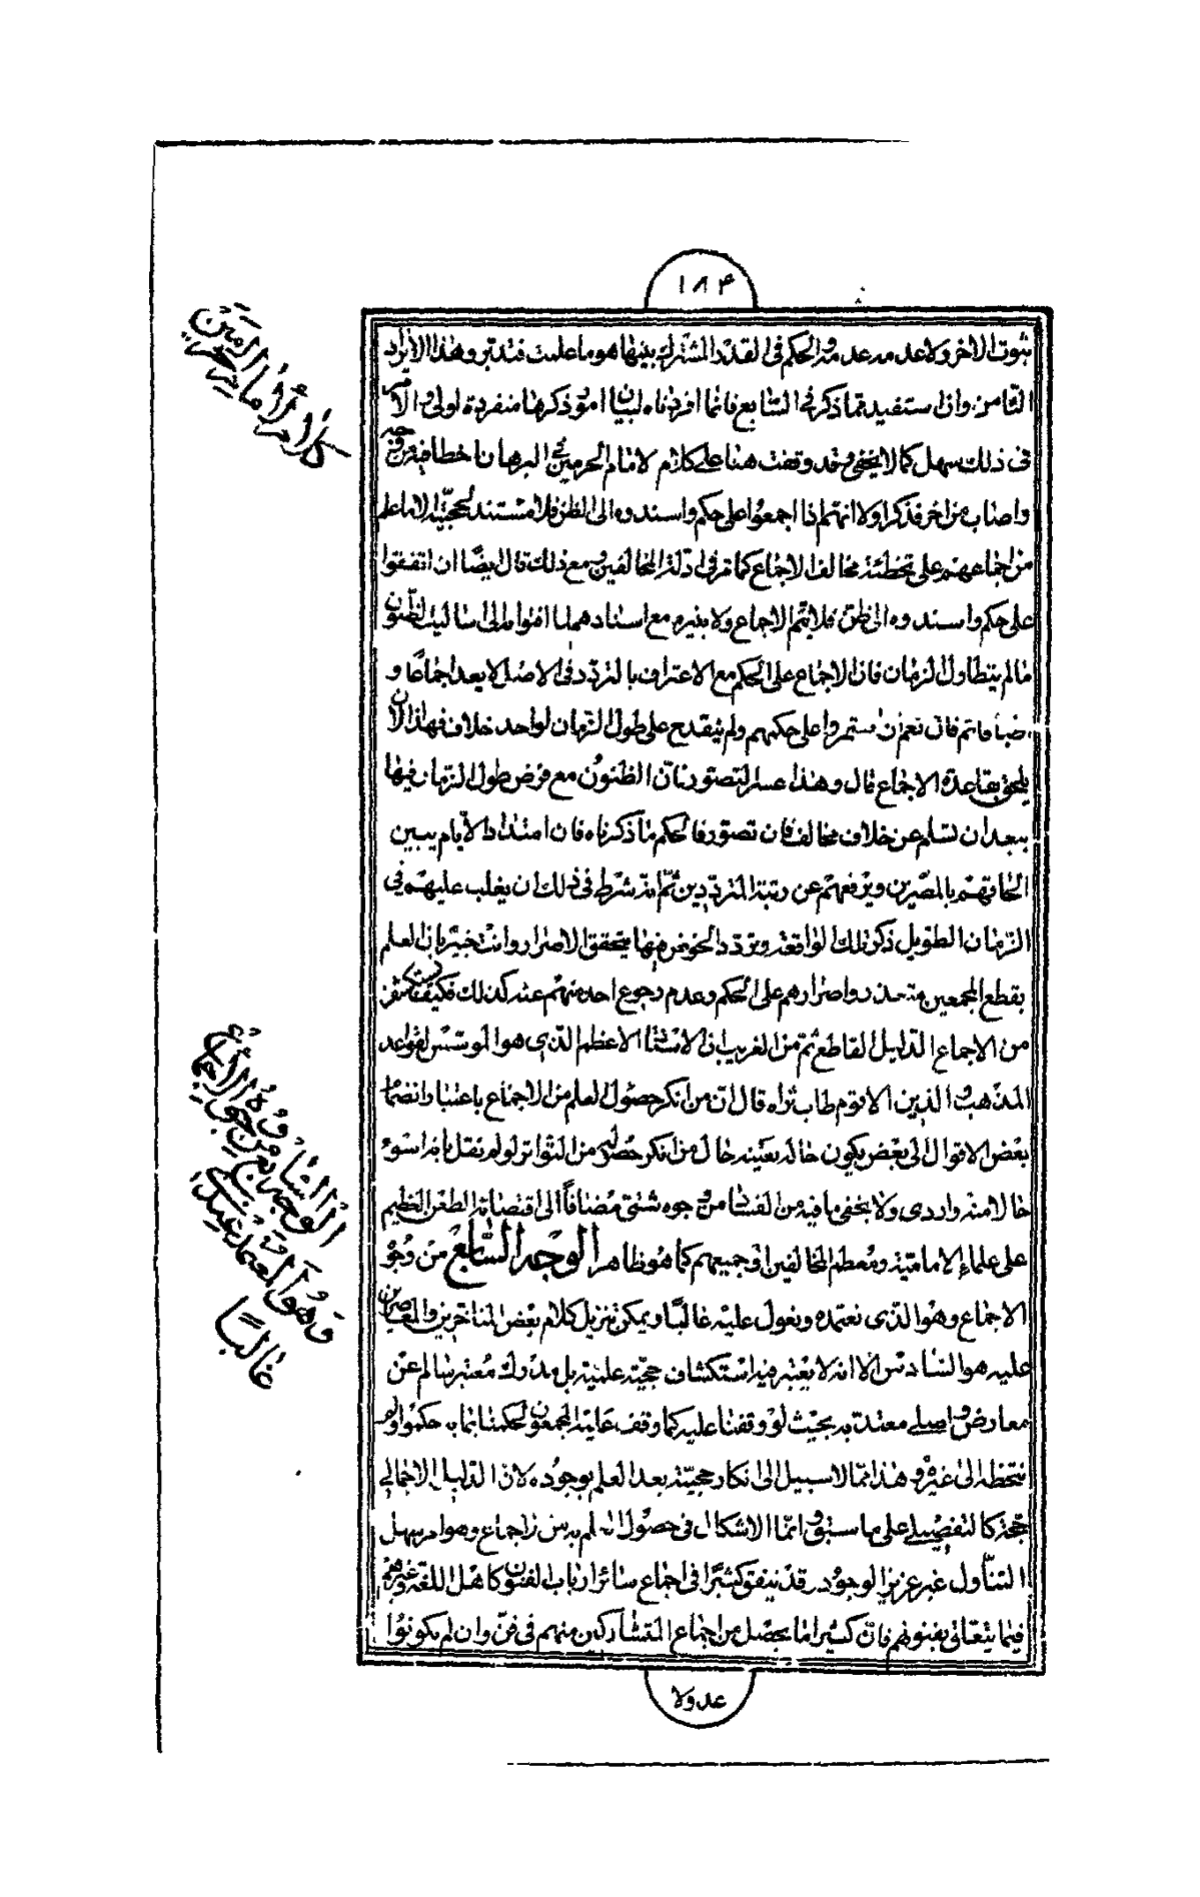 ١٨٤
ثبوت الاخر ولا عدمه عدمه والحكم في القدر المشترك بينهما هو ما علمت فتدبر وهذا الايراد
الثامن وان استفيد مما ذكر في السابع فانما افردناه لبيان امور ذكرها منفردة اولى والامر
في ذلك سهل كما لا يخفى وقد وقفت هنا على كلام لامام الحرمين في البرهان اخطا فيه من وجه
واصاب من اخر فذكر اولا انهم اذا اجمعوا على حكم واسندوه الى الظن فلا مستند لحجيته الا ما علم
من اجماعهم على تخطئة مخالف الاجماع كما مر في ادلة المخالفين ومع ذلك قال ايضًا ان اتفقوا
على حكم واسندوه الى ظن فلا يتم الاجماع ولا ينبرم مع اسنادهم ما افتوا به الى اساليب الظنون
ما لم يتطاول الزمان فان الاجماع على الحكم مع الاعتراف بالتردد في الاصل لا يعد اجماعًا و
ثم قال نعم ان استمروا على حكمهم ولم ينقدح على طول الزمان لواحد خلاف فهذا الان
يلحق بقاعدة الاجماع قال وهذا عسر التصور فان الظنون مع فرض طول الزمان فيها
يبعد ان تسلم عن خلاف مخالف فان تصور فالحكم ما ذكرناه فان امتداد الايام يبين
الحاقهم بالمصرين ويرفعهم عن رتبة المترددين ثم انه شرط في ذلك ان يغلب عليهم في
الزمان الطويل ذكر تلك الواقعة وترداد الخوض فيها يتحقق الاصرار وانت خبير بان العلم
بقطع المجمعين متعذر واصرارهم على الحكم وعدم رجوع احد منهم عنه كذلك فكيف يستكشف
من الاجماع الدليل القاطع ثم من الغريب ان الاستاد الاعظم الذي هو المؤسس لقواعد
المذهب والدين الاقوم طاب ثراه قال ان من انكر حصول العلم من الاجماع باعتبار انضمام
بعض الاقوال الى بعض يكون حاله بعينه حال من انكر حصوله من التواتر لو لم نقل بانه اسوء
حالا منه واردى ولا يخفى ما فيه من الفساد من وجوه شتى مضافًا الى اقتضائه الطعن العظيم
على علماء الامامية ومعظم المخالفين او جميعهم كما هو ظاهر الوجه السابع من وجوه
الاجماع وهو الذي نعتمده ونعول عليه غالبًا ويمكن تنزيل كلام بعض المتاخرين والمعاصرين
عليه هو السادس الا انه لا يعتبر فيه استكشاف حجية علمية بل مدرك معتبر سالم عن
معارض واصلي معتد به بحيث لو وقفنا عليه كما وقف عليه المجمعون لحكمنا بما به حكموا ولم
نتخطه الى غيره وهذا مما لا سبيل الى انكار حجيته بعد العلم بوجوده لان الدليل الاجمالي
حجة كالتفصيلي على ما سبق وانما الاشكال في حصول العلم به من الاجماع وهو امر سهل
التناول غير عزيز الوجود وقد يتفق كثيرًا في اجماع سائر ارباب الفنون كاهل اللغة وغيرهم
فيما يتعلق بفنونهم فان كثيرا ما يحصل من اجماع المتشاركين منهم في فن وان لم يكونوا
عدولا
كلام امام الحرمين
الوجه السابع من وجوه الاجماع
وهو المعتمد عليه
غالبًا